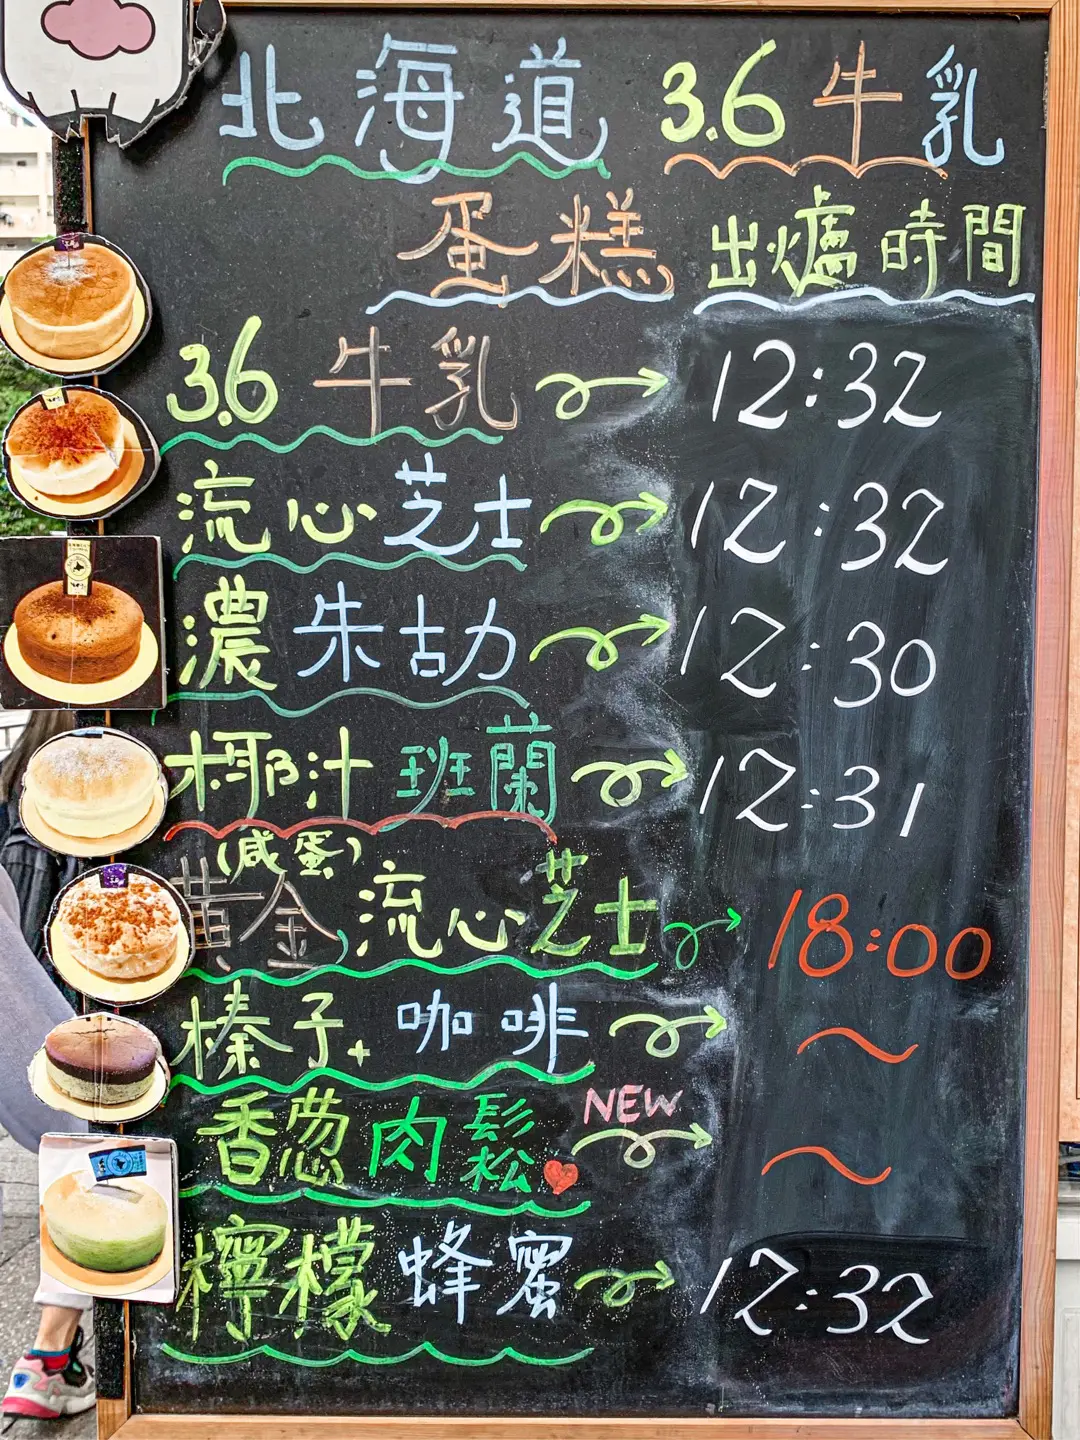 北海道 3.6牛乳
蛋糕 出爐時間
3.6牛乳 12:32
流心芝士 12:32
濃朱古力 12:30
椰汁班蘭 12:31
(咸蛋)
黃金流心芝士 18:00
榛子+咖啡 ~
NEW
香葱肉鬆 ~
檸檬蜂蜜 12:32